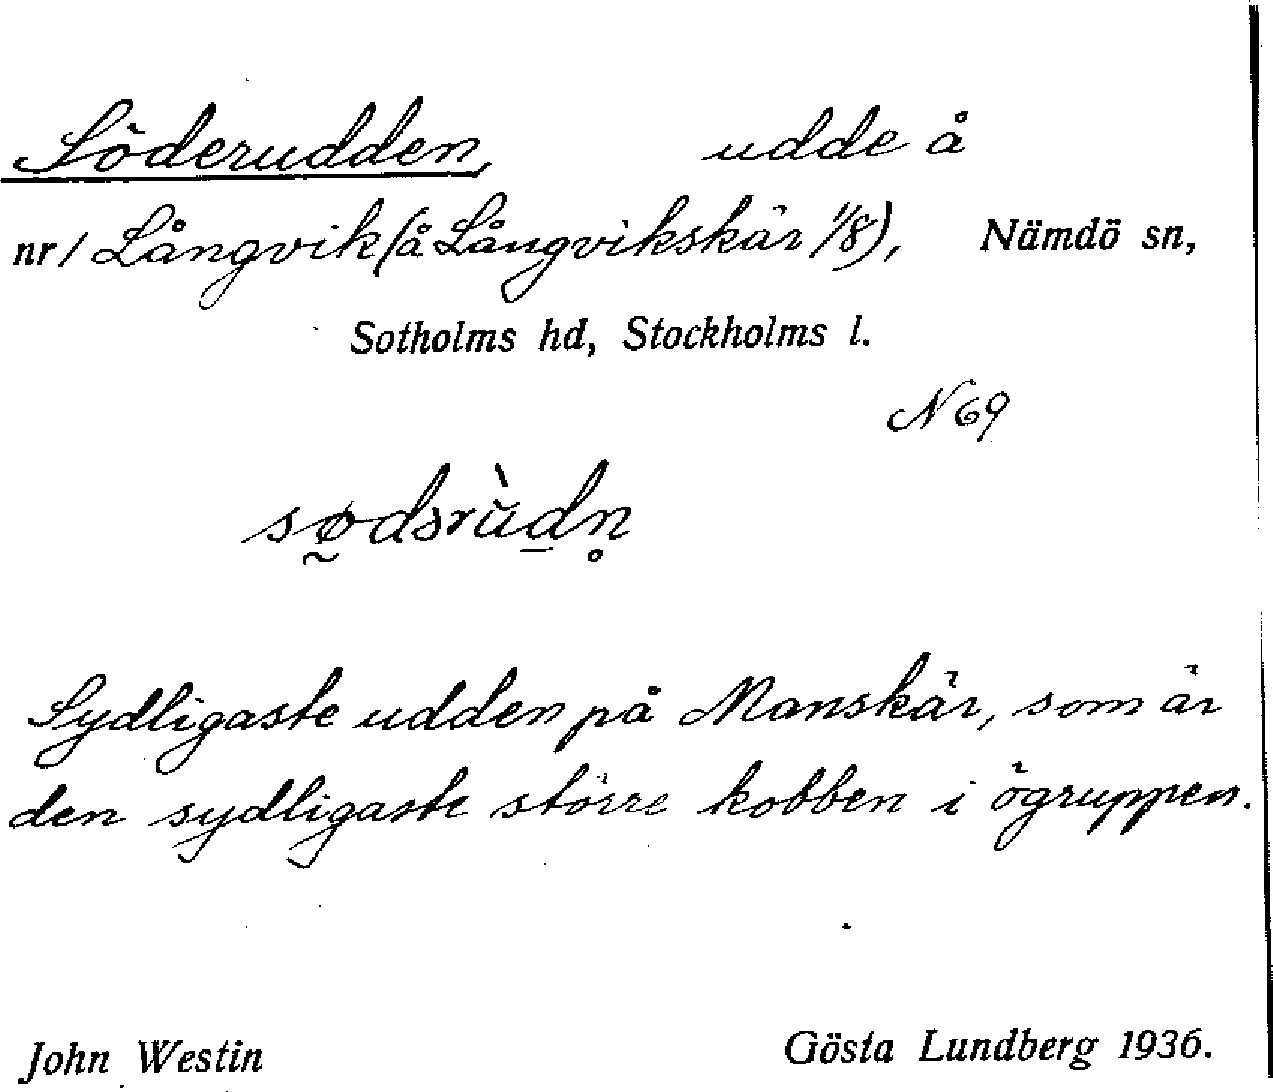 Söderudden, udde å
nr 1 Långvik (å Långvikskär 1/8), Nämdö sn,
Sotholms hd, Stockholms l.
N 69
sø̰dərùd̲n̥
Sydligaste udden på Manskär, som är
den sydligaste större kobben i ögruppen.
John Westin Gösta Lundberg 1936.